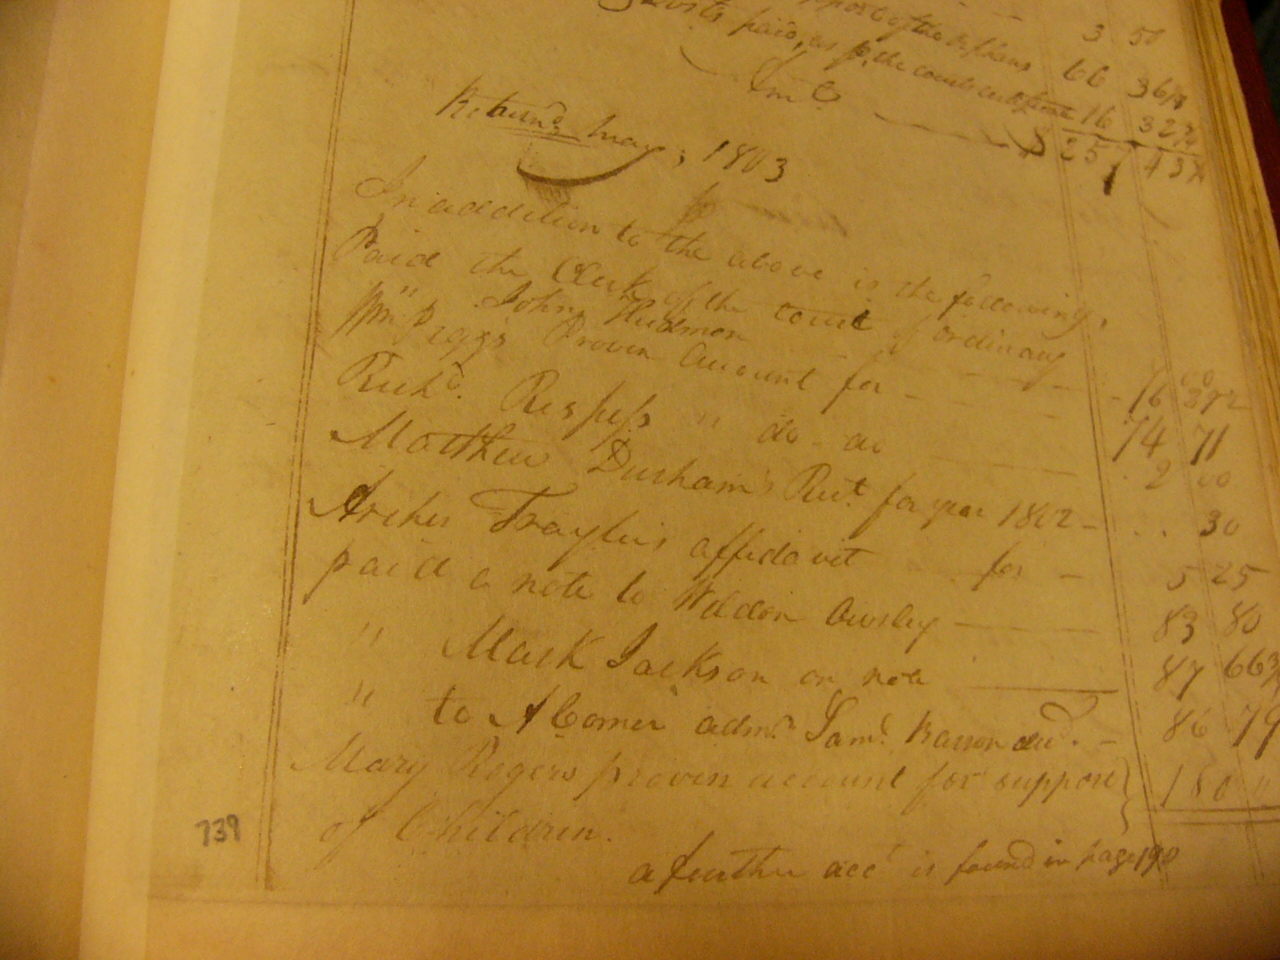 support of the orphans 3 50
Costs paid, as pr. the courts 66 36¼
Amt. 16 32¾
$ 251 43¾
Returnd May, 1803
In addition to the above is the following,
Paid the Clerk of the court of ordinary
John Hudmon 16 292
Wm. Pegg's Proven Account for 74 71
Richd. Respess " do - do 2 00
Matthew Durham's Rect. for year 1802 - .. 30
Archer Traylers affidavit for - 5 25
paid a note to Weldon Ousley 83 80
" Mark Jackson on note 87 66¾
" to A Comer admr. Saml. Barron decd. - 86 79
Mary Rogers proven account for support 180 "
of Children.
a further acct is found in page 190
739